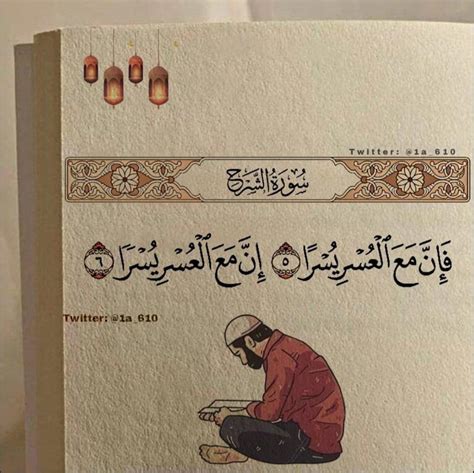 Twitter: @1a_610
سُورَةُ الشَّرۡحِ
فَإِنَّ مَعَ ٱلۡعُسۡرِ يُسۡرًا ٥ إِنَّ مَعَ ٱلۡعُسۡرِ يُسۡرٗا ٦
Twitter: @1a_610